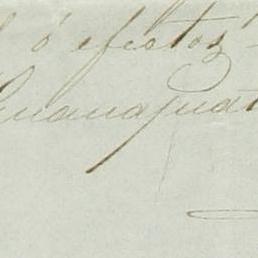 ó efectos
Guanajuat